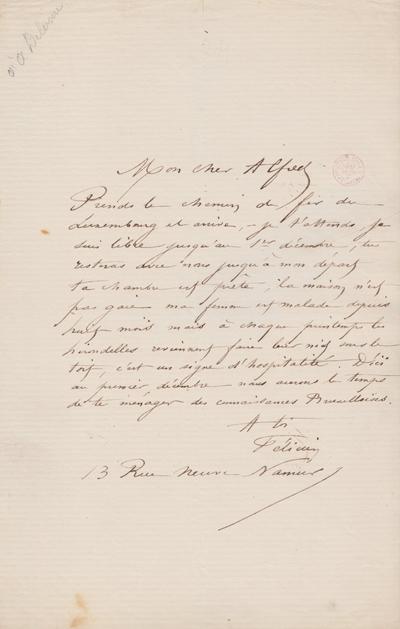 à A Delvau
Mon cher Alfred
Prends le chemin de fer du
Luxembourg et arrive, – je t'attends, je
suis libre jusqu'au 1er décembre, tu
resteras avec nous jusqu'à mon départ
ta chambre est prête ; la maison n'est
pas gaie ma femme est malade depuis
huit mois mais à chaque printemps les
hirondelles reviennent faire leur nid sous le
toit, c'est un signe d'hospitalité. D'ici
au premier décembre nous aurons le temps
de te ménager des connaissances Bruxelloises.
A toi
Félicien
13 Rue Neuve Namur